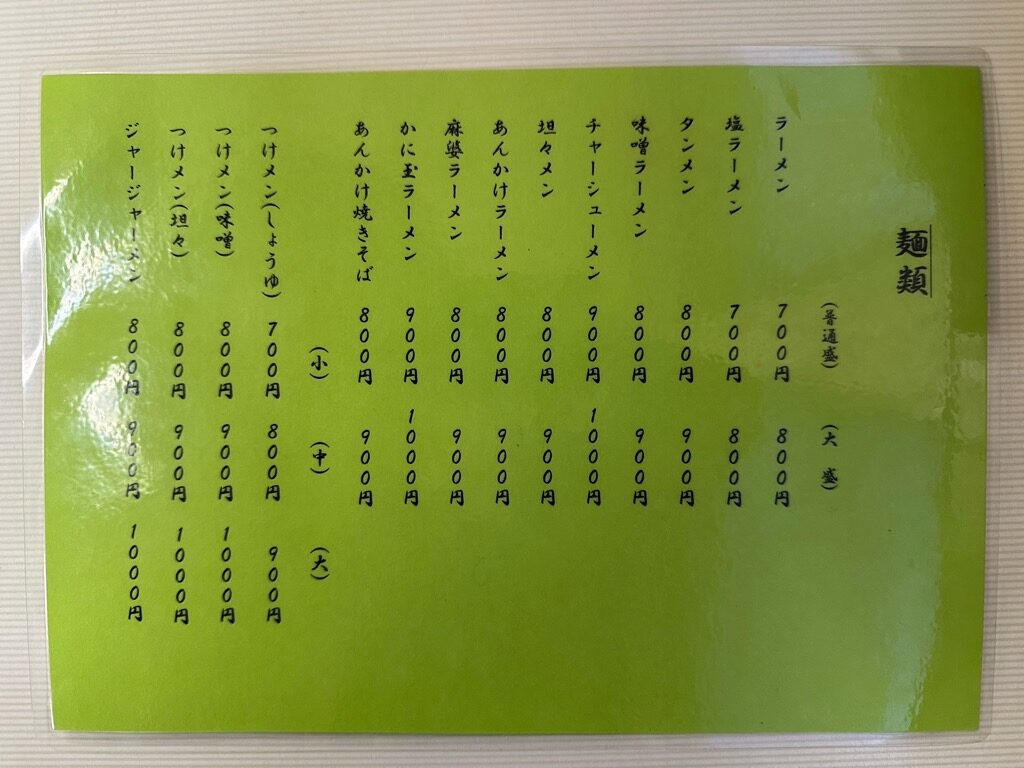 麺類
(普通盛) (大 盛)
ラーメン 700円 800円
塩ラーメン 700円 800円
タンメン 800円 900円
味噌ラーメン 800円 900円
チャーシューメン 900円 1000円
坦々メン 800円 900円
あんかけラーメン 800円 900円
麻婆ラーメン 800円 900円
かに玉ラーメン 900円 1000円
あんかけ焼きそば 800円 900円
(小) (中) (大)
つけメン(しょうゆ) 700円 800円 900円
つけメン(味噌) 800円 900円 1000円
つけメン(坦々) 800円 900円 1000円
ジャージャーメン 800円 900円 1000円